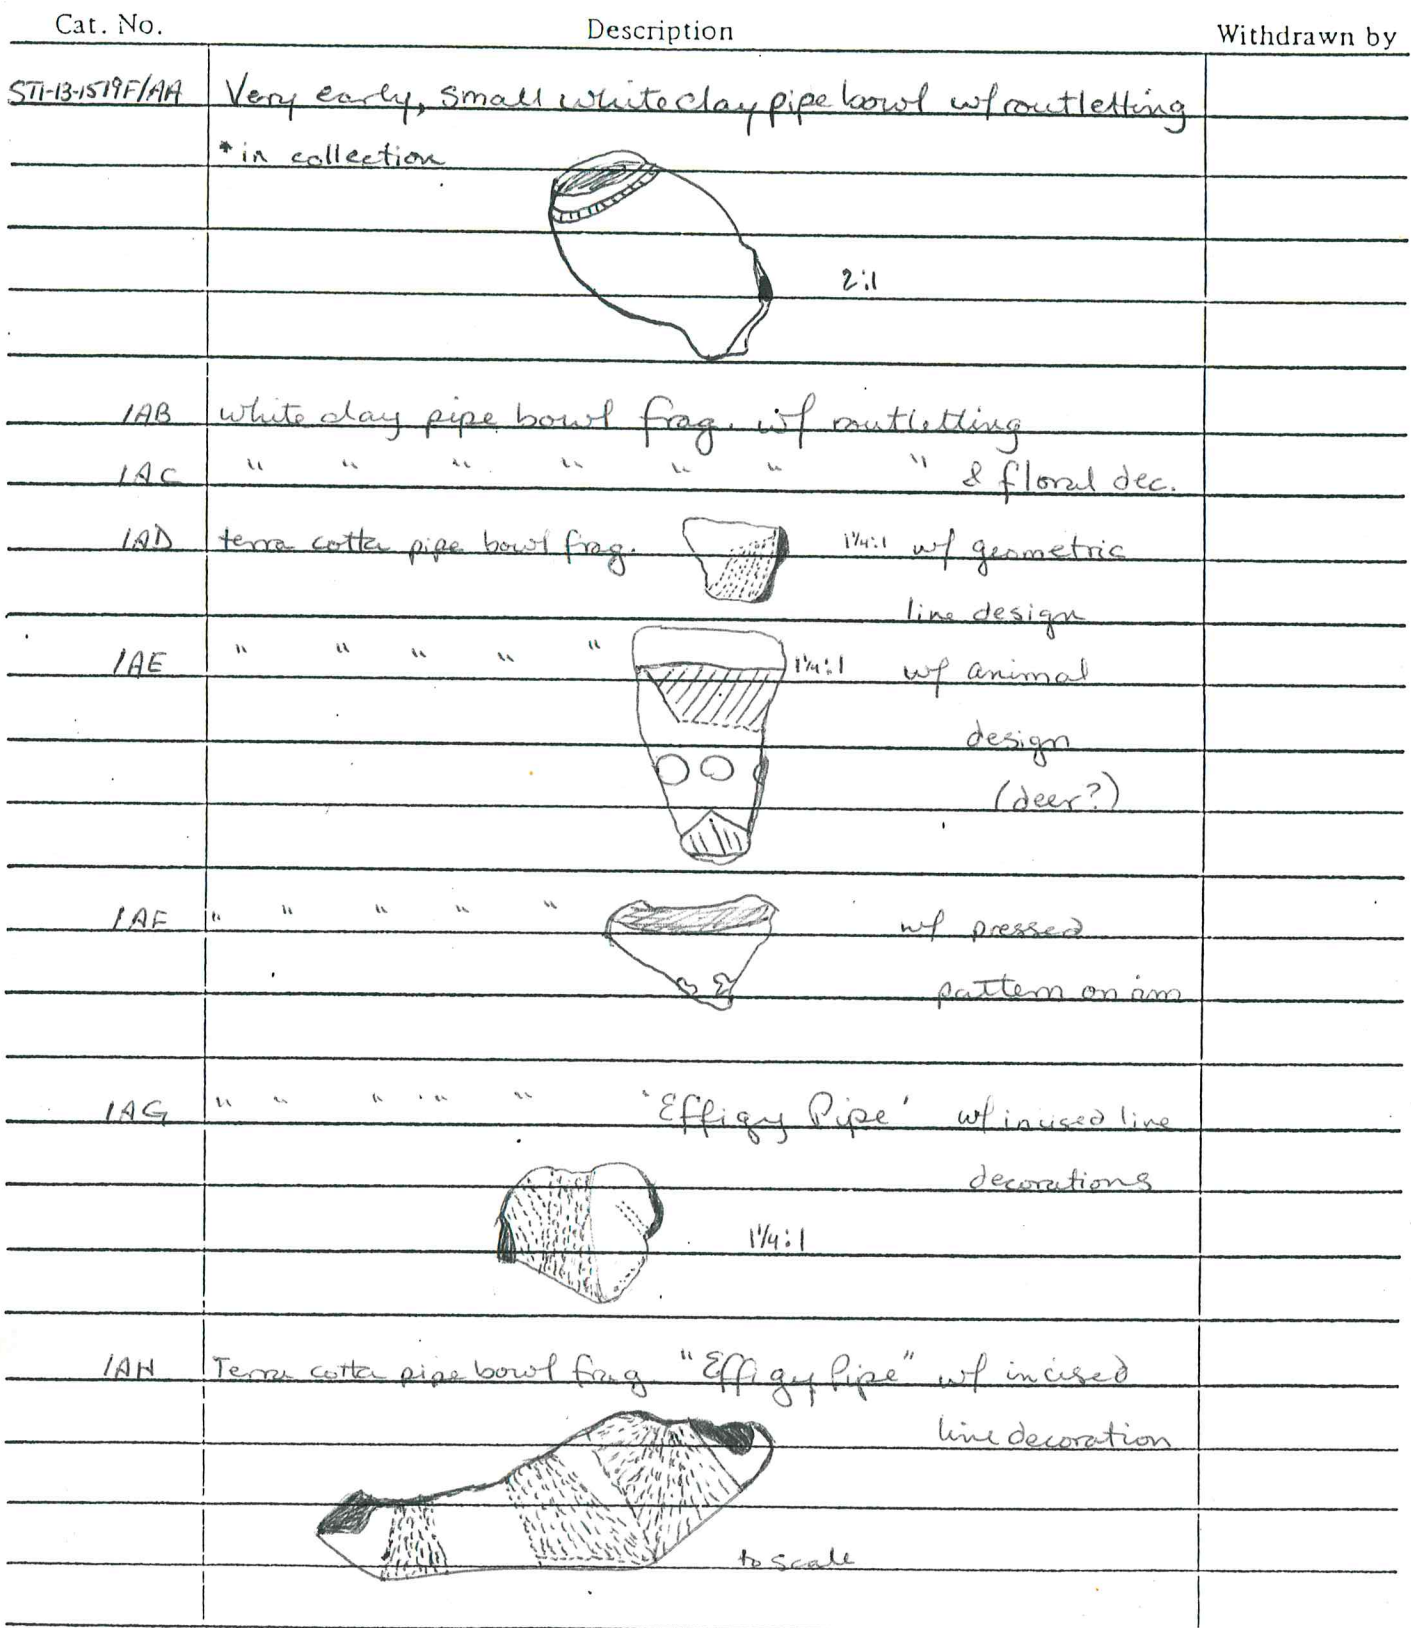 Cat. No. Description Withdrawn by
ST1-13-1519F/AA Very early, small white clay pipe bowl w/ routletting
*in collection
2:1
/AB white clay pipe bowl frag. w/ routletting
/AC " " " " " " " & floral dec.
/AD terra cotta pipe bowl frag. 1¼:1 w/ geometric
line design
/AE " " " " " 1¼:1 w/ animal
design
(deer?)
/AF " " " " " w/ pressed
pattern on rim
/AG " " " " " 'Effigy Pipe' w/ incised line
decorations
1¼:1
/AH Terra cotta pipe bowl frag "Effigy Pipe" w/ incised
line decoration
to scale